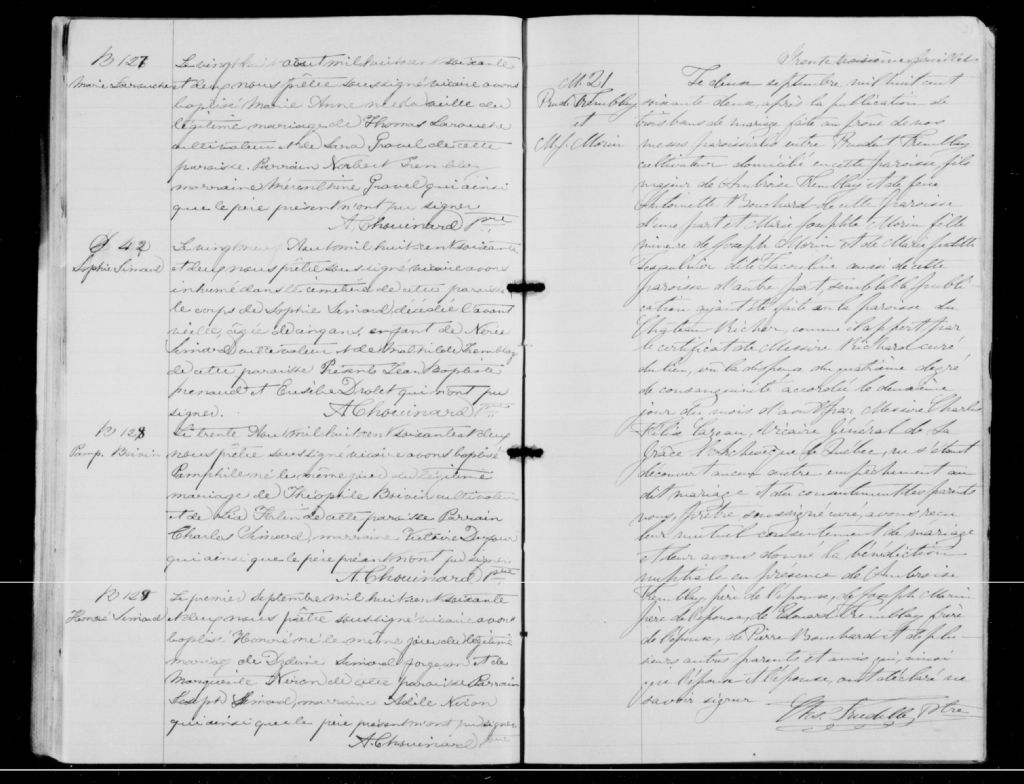 B 127
Marie Larouche
Le vingt huit aout mil huit cent soixante
et deux nous prêtre soussigné vicaire avons
baptisé Marie Anne née la veille du
légitime mariage de Thomas Larouche
cultivateur et de Gravel de cette
paroisse. Parrain Norbert Tremblay
marraine Gravel qui ainsi
que le père présent n'ont pu signer
A. Chouinard Ptre
S 42
Sophie Simard
Le vingt neuf Aout mil huit cent soixante
et deux nous prêtre soussigné vicaire avons
inhumé dans le cimetière de cette paroisse
le corps de Sophie Simard décédée l'avant
veille, agée de cinq ans, enfant de
Simard cultivateur et de Mathilde Tremblay
de cette paroisse Présents Jean Baptiste
et Eusèbe Drolet qui n'ont pu
signer. A Chouinard Ptre
B 128
Pamp. Boivin
Le trente Aout mil huit cent soixante et deux
nous prêtre soussigné vicaire avons baptisé
Pamphile né le même jour du légitime
mariage de Théophile Boivin cultivateur
et de de cette paroisse Parrain
Charles Simard, marraine
qui ainsi que le père présent n'ont pu signer
A. Chouinard Ptre
B 129
Honoré Simard
Le premier Septembre mil huit cent soixante
et deux nous prêtre soussigné vicaire avons
baptisé Honoré né le même jour du légitime
mariage de Simard forgeron et de
Marguerite Neron de cette paroisse Parrain
Joseph Simard, marraine Adèle Neron
qui ainsi que le père présent n'ont pu signer
A. Chouinard Ptre
Trente troisième feuillet
M. 21
Prud. Tremblay
et
M. J. Morin
Le deux septembre, mil huit cent
soixante deux, après la publication de
trois bans de mariage faite au prône de nos
messes paroissiales entre Prudent Tremblay
cultivateur domicilié en cette paroisse, fils
majeur de Ambroise Tremblay et de feue
Antoinette Bouchard de cette paroisse
d'une part et Marie Josephte Morin fille
mineure de Joseph Morin et de Marie Judith
dite aussi de cette
paroisse d'autre part, semblable publi-
cation ayant été faite en la paroisse du
Château-Richer, comme il appert par
le certificat de Messire Richard curé
du lieu, vu la dispense du quatrième degré
de consanguinité accordée le deuxième
jour du mois d'aout par Messire Charles
Félix Cazeau, Vicaire Général de Sa
Grâce l'Archevêque de Québec, ne s'étant
découvert aucun autre empêchement au
dit mariage et du consentement des parents
nous, Prêtre soussigné curé, avons reçu
leur mutuel consentement de mariage
et leur avons donné la bénédiction
nuptiale en présence de Ambroise
Tremblay, père de l'époux, de Joseph Morin
père de l'épouse, de Edouard Tremblay, frère
de l'époux, de Pierre Bouchard et de plu-
sieurs autres parents et amis qui, ainsi
que l'époux et l'épouse, ont déclaré ne
savoir signer
Chs. Trudelle Ptre